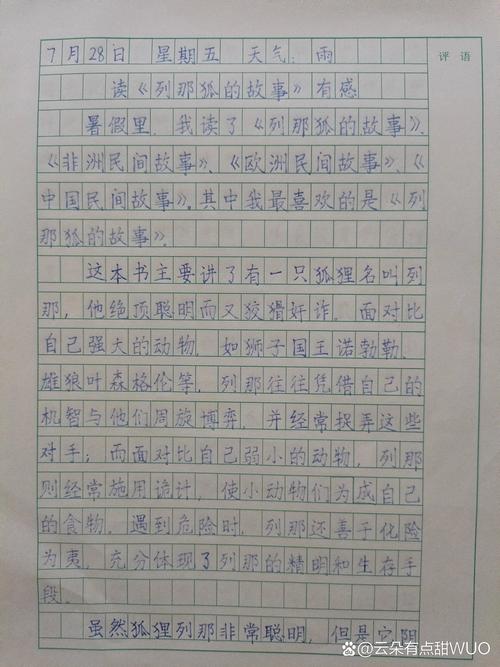 7月28日 星期五 天气：雨
评语
读《列那狐的故事》有感
暑假里，我读了《列那狐的故事》、
《非洲民间故事》、《欧洲民间故事》、《
中国民间故事》。其中我最喜欢的是《列
那狐的故事》。
这本书主要讲了有一只狐狸名叫列
那，他绝顶聪明而又狡猾奸诈。面对比
自己强大的动物，如狮子国王诺勃勒、
雄狼叶森格伦等，列那往往凭借自己的
机智与他们周旋博弈，并经常捉弄这些
对手；而面对比自己弱小的动物，列那
则经常施用诡计，使小动物们为成自己
的食物。遇到危险时，列那还善于化险
为夷，充分体现了列那的精明和生存手
段。
虽然狐狸列那非常聪明，但是它阴
@云朵有点甜WUO